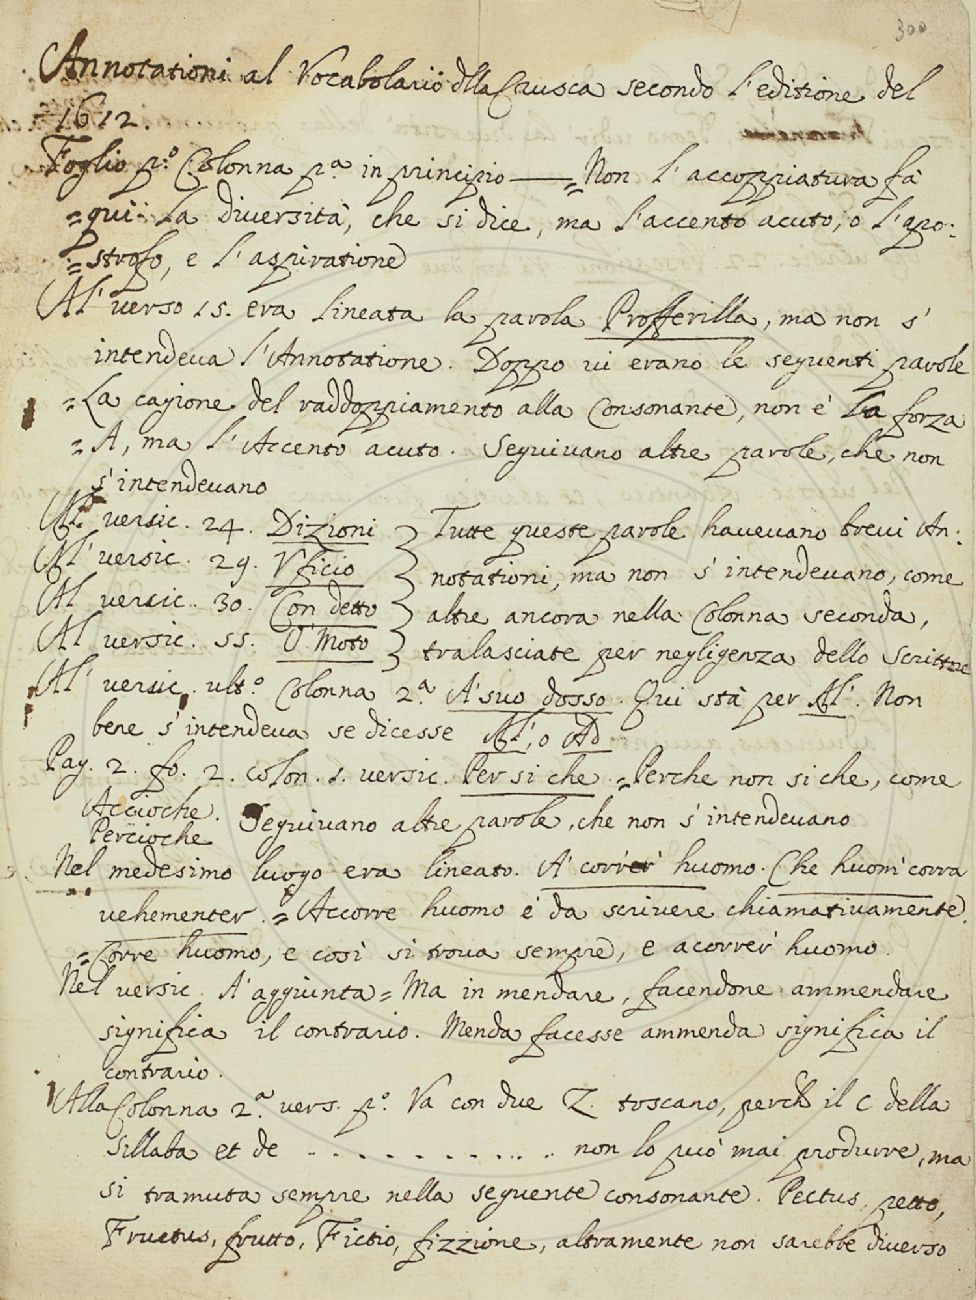 300
Annotationi al Vocabolario dlla Crusca secondo l'editione del
1612.
Foglio p.º Colonna p.ª in principio — = Non l'accoppiatura fà
= quì la diversità, che si dice, ma l'accento acuto, o l'apo-
= strofo, e l'aspiratione
Al' verso 15. era lineata la parola Profferilla, ma non s'
intendeva l'Annotatione. Doppo vi erano le seguenti parole
= La cagione del raddoppiamento alla Consonante, non è la forza
= A, ma l'Accento acuto. Seguivano altre parole, che non
s'intendevano
Al' versic. 24. Dizioni } Tutte queste parole havevano brevi An:
Al' versic. 29. Vficio } notationi, ma non s'intendevano, come
Al' versic. 30. Con detto } altre ancora nella Colonna seconda,
Al versic. 55. O' Moto } tralasciate per negligenza dello Scrittore
Al' versic. ult.º Colonna 2.ª A' suo dosso. Qui stà per Al'. Non
bene s'intendeva se dicesse Al', o Ad
Pag. 2. fo. 2. colon. 1. versic. Per si che. = Perche non si che, come
Accioche.
Percioche Seguivano altre parole, che non s'intendevano
Nel medesimo luogo era lineato. A' correr' huomo. Che huom' corra
vehementer. = Accorre huomo è da scrivere chiamativamente.
= Corre huomo, e così si trova sempre, e a correr' huomo.
Nel versic. A' aggiunta = Ma in mendare, facendone ammendare
significa il contrario. Menda facesse ammenda significa il
contrario.
Alla Colonna 2.ª vers. p.º Va con due Z. toscano, perche il c della
Sillaba et de . . . . . . . . . . . non lo può mai produrre, ma
si tramuta sempre nella seguente consonante. Pectus, petto,
Fructus, frutto, Fictio, fizzione, altramente non sarebbe diverso